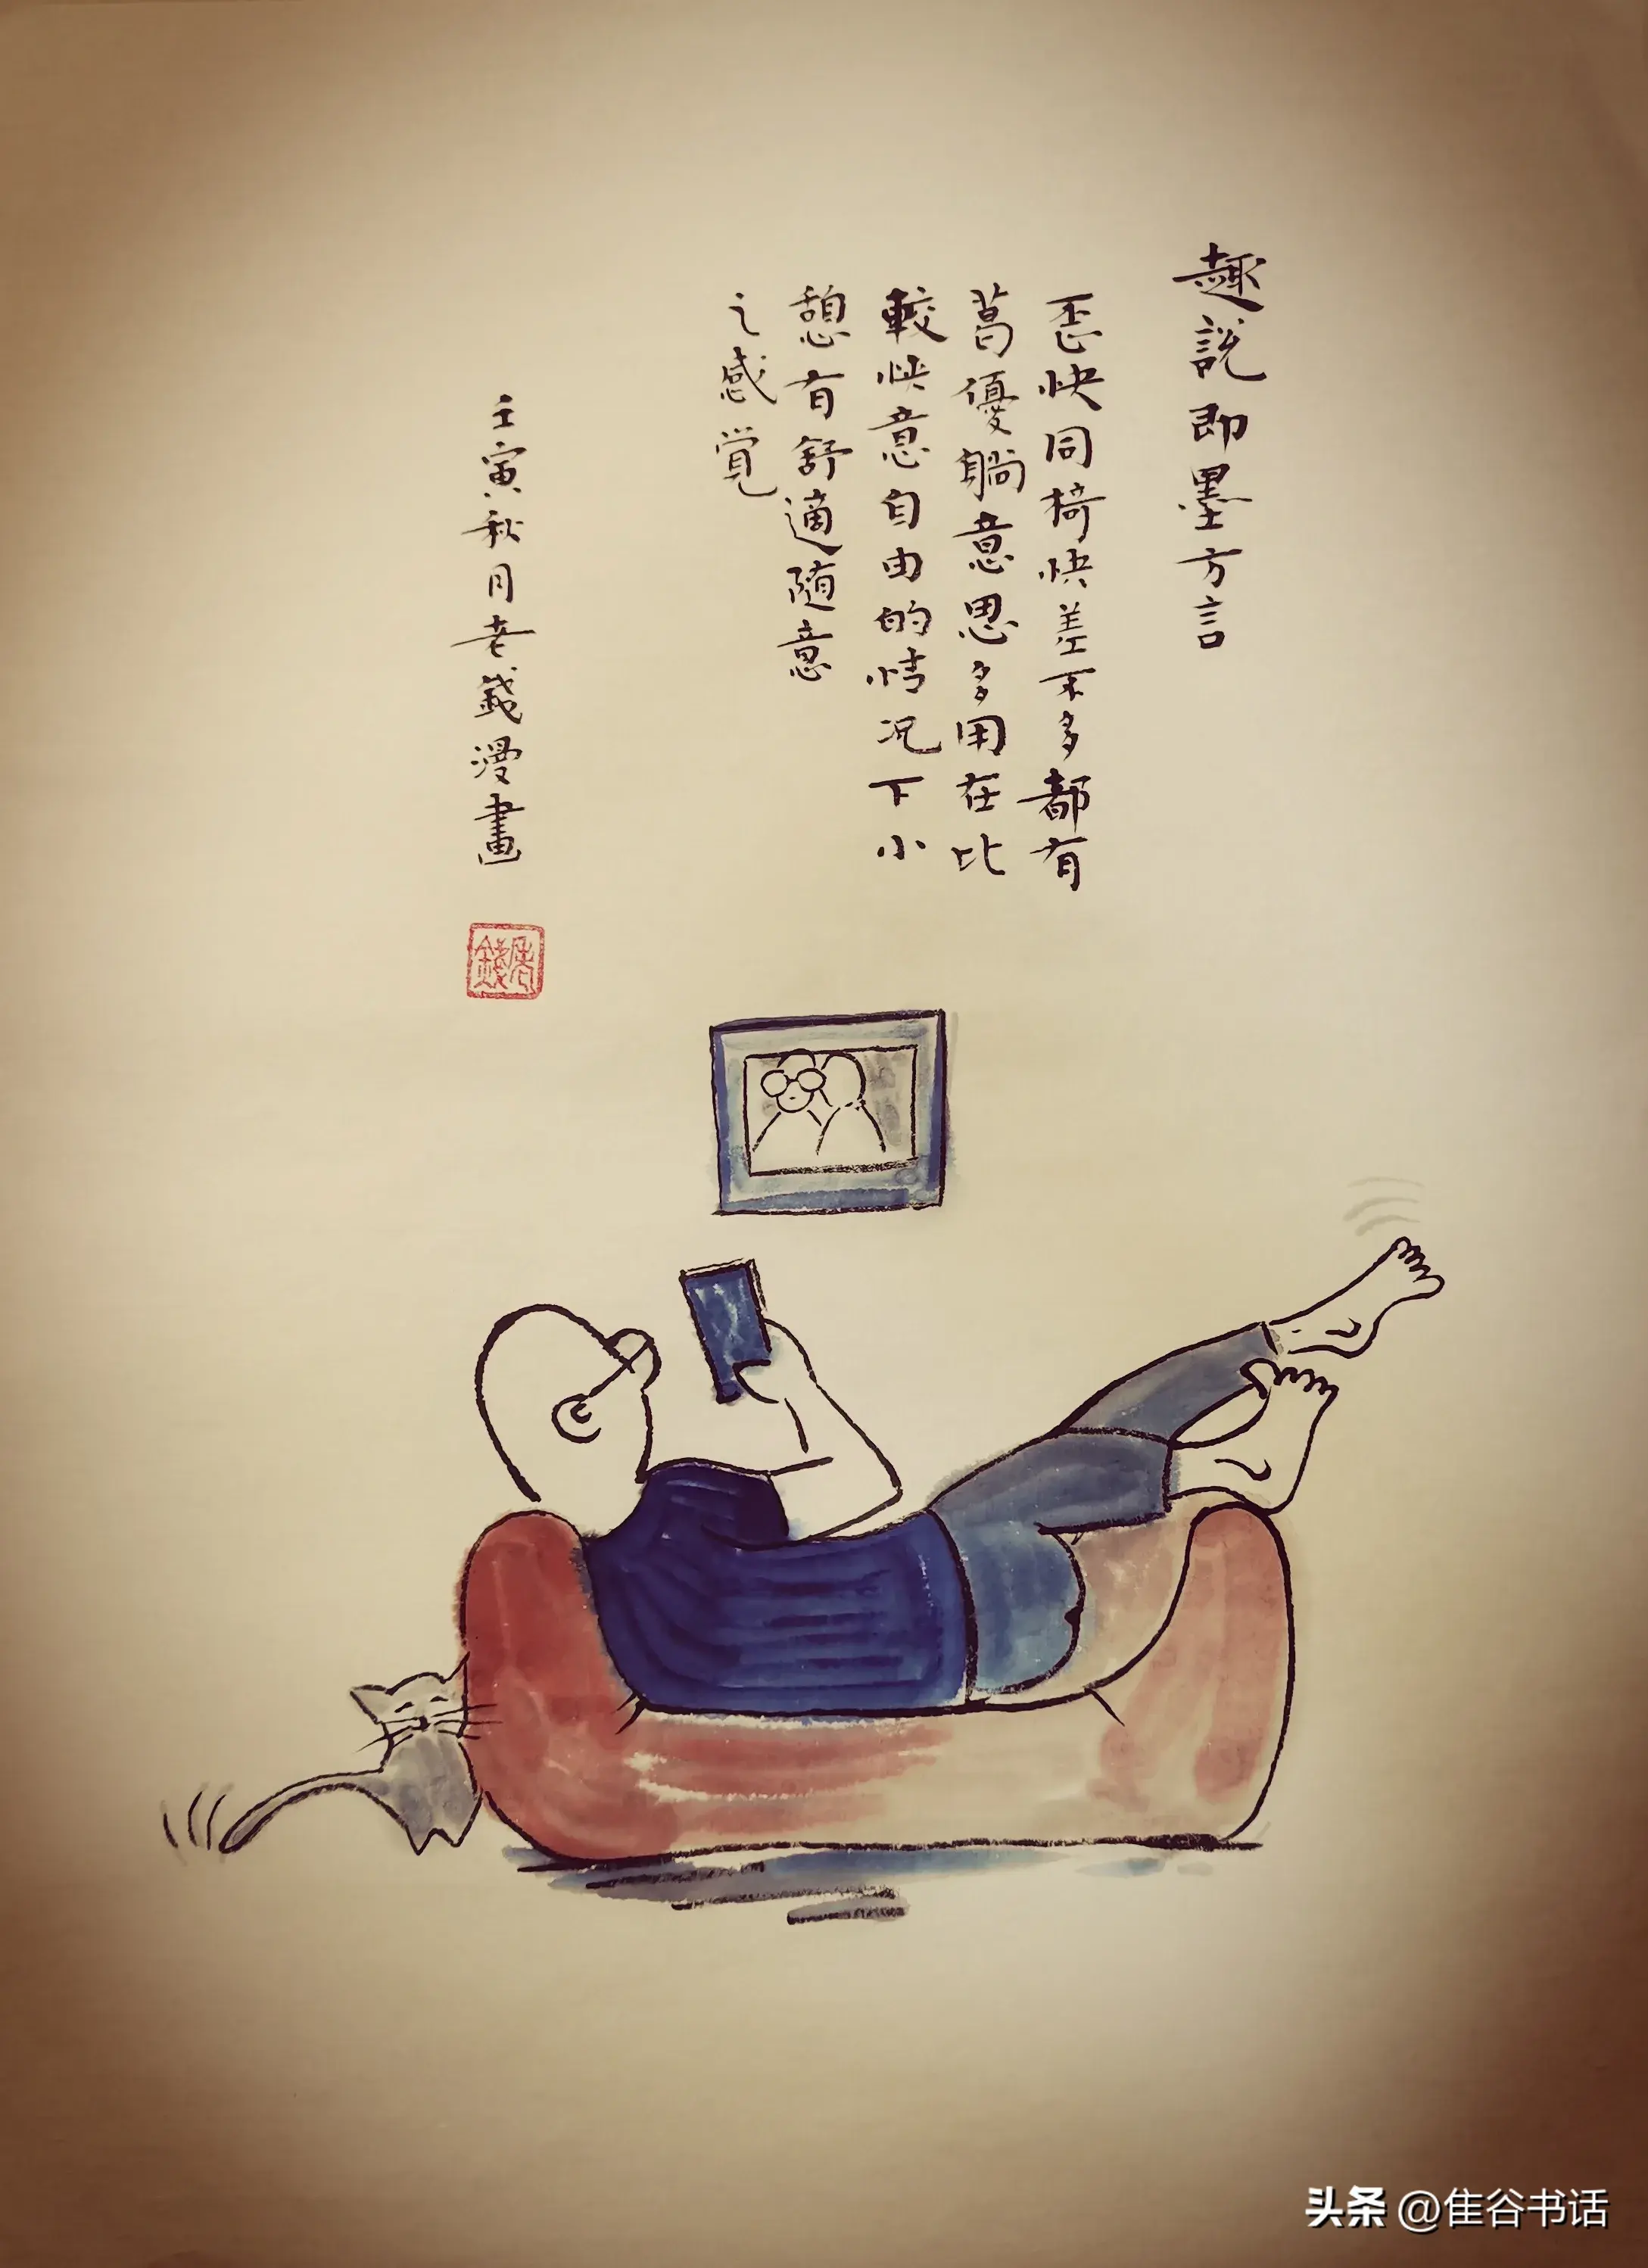 趣說即墨方言
歪快同椅快差不多都有
葛優躺意思多用在比
較快意自由的情况下小
憩有舒適随意
之感覚
壬寅秋月老錢漫畫
老錢
头条 @隹谷书话